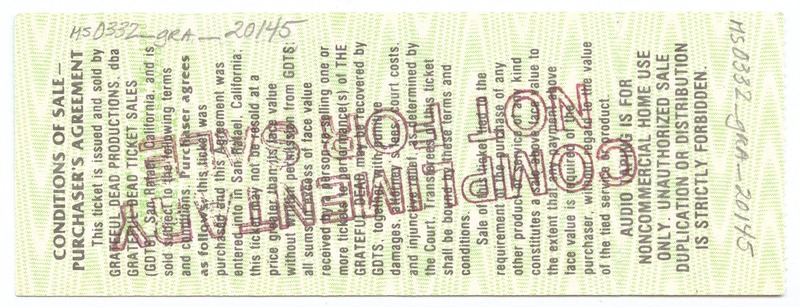 MS0332_gRA_20145
CONDITIONS OF SALE—
PURCHASER'S AGREEMENT
This ticket is issued and sold by
GRATEFUL DEAD PRODUCTIONS. dba
GRATEFUL DEAD TICKET SALES
(GDTS), San Rafael, California, and is
sold subject to the following terms
and conditions. Purchaser agrees
as follows: this ticket was
purchased and this Agreement was
entered into in San Rafael, California.
this ticket may not be resold at a
price greater than its face value
without written permission from GDTS:
all sums in excess of face value
received by a person re-selling one or
more tickets to performance(s) of THE
GRATEFUL DEAD may be recovered by
GDTS. together with the
damages, attorney's fees, court costs.
and injunctive relief, as determined by
the Court. Transferees of this ticket
shall be bound by these terms and
conditions.
Sale of this ticket tied to the
requirement of the purchase of any
other product or service of any kind
constitutes a sale above face value to
the extent that any payment above
face value is required of the
purchaser, without regard to the value
of the tied service or product.
AUDIO TAPING IS FOR
NONCOMMERCIAL HOME USE
ONLY. UNAUTHORIZED SALE
DUPLICATION OR DISTRIBUTION
IS STRICTLY FORBIDDEN.
COMPLIMENTARY
NOT FOR SALE
MS0332_gRA_20145